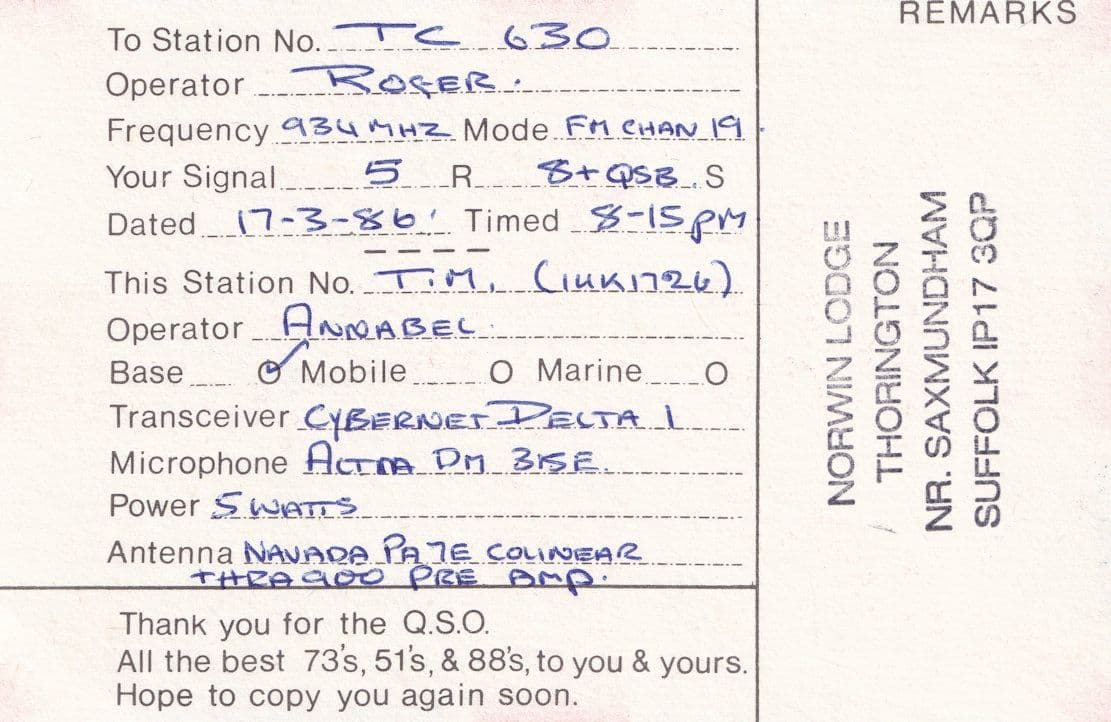 To Station No. TC 630
Operator ROGER.
Frequency 934 MHZ Mode FM CHAN 19
Your Signal 5 R 8+QSB. S
Dated 17-3-86 Timed 8-15pm
This Station No. T.M. (1UK1726)
Operator ANNABEL.
Base Mobile Marine
Transceiver CYBERNET DELTA 1
Microphone DM 315E.
Power 5 WATTS
Antenna NAVADA PA 7E COLINEAR
+HRA900 PRE AMP.
Thank you for the Q.S.O.
All the best 73's, 51's, & 88's, to you & yours.
Hope to copy you again soon.
REMARKS
NORWIN LODGE
THORINGTON
NR. SAXMUNDHAM
SUFFOLK IP17 3QP